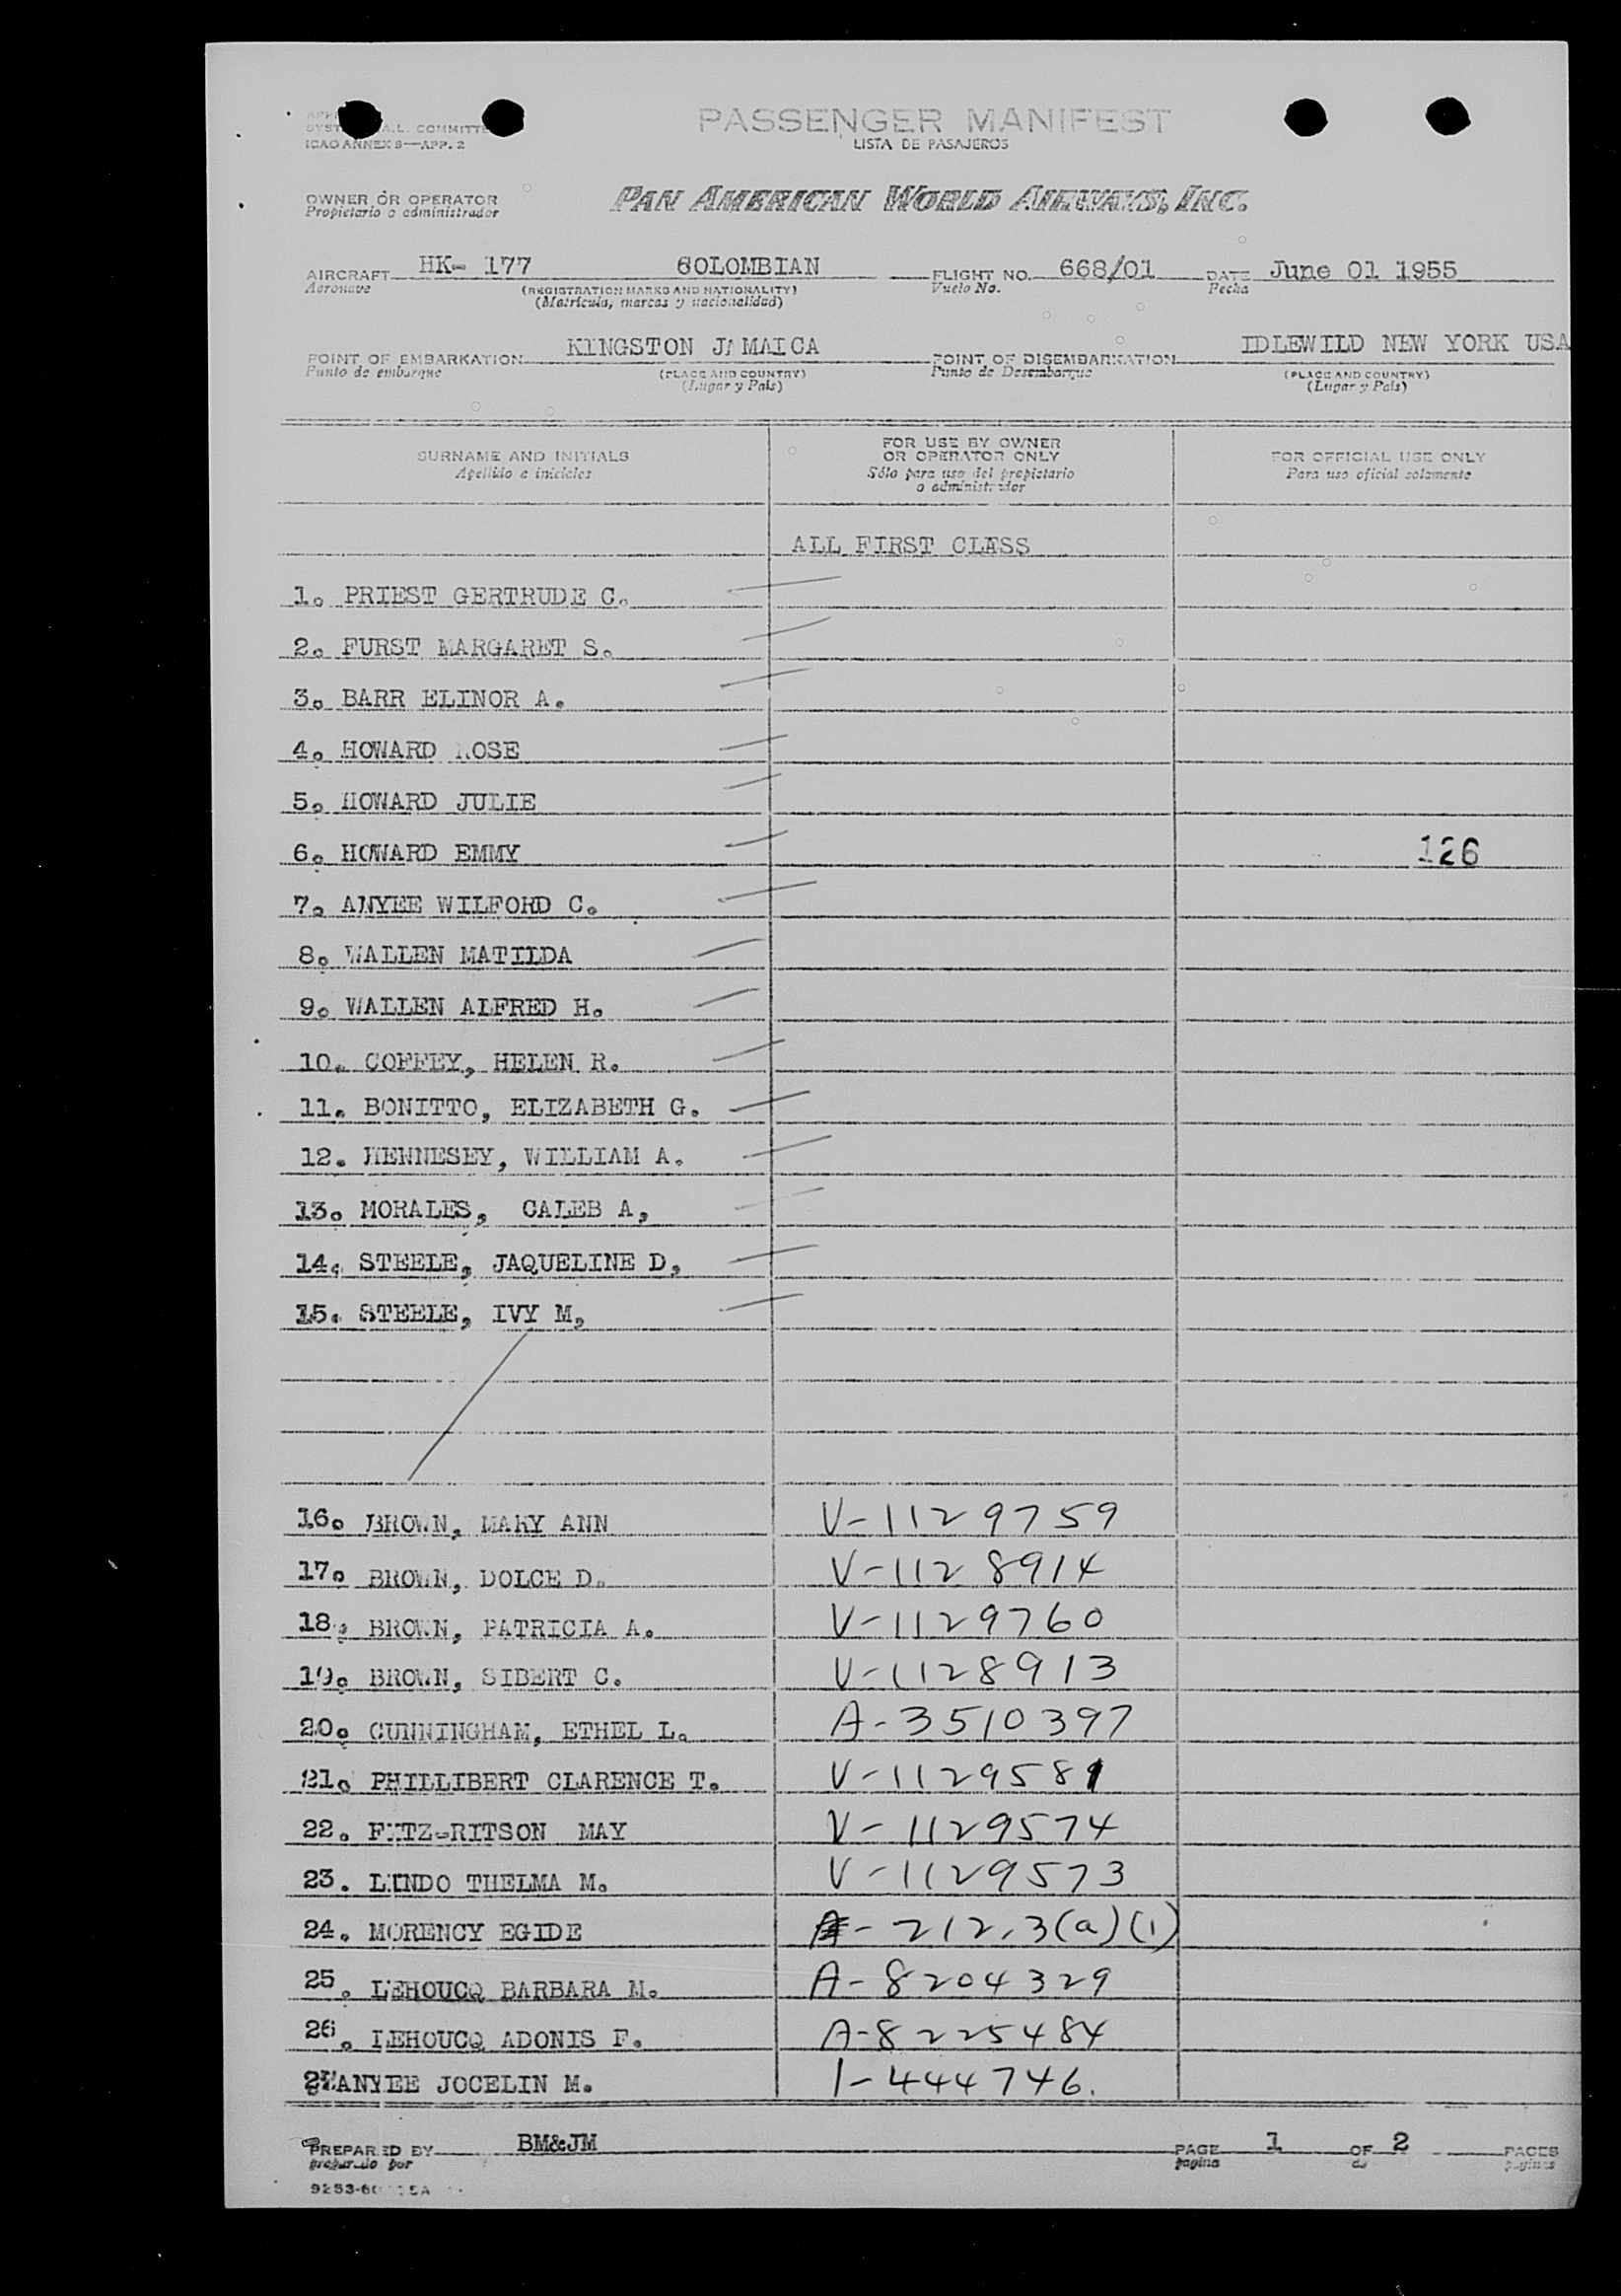 PASSENGER MANIFEST
LISTA DE PASAJEROS
A.L. COMMITTE
ICAO ANNEX 9—APP. 2
OWNER OR OPERATOR
Propietario o administrador
PAN AMERICAN WORLD AIRWAYS, INC.
AIRCRAFT HK- 177 COLOMBIAN FLIGHT NO. 668/01 DATE June 01 1955
Aeronave (REGISTRATION MARKS AND NATIONALITY) Vuelo No. Fecha
(Matrícula, marcas y nacionalidad)
POINT OF EMBARKATION KINGSTON JAMAICA POINT OF DISEMBARKATION IDLEWILD NEW YORK USA
Punto de embarque (PLACE AND COUNTRY) Punto de Desembarque (PLACE AND COUNTRY)
(Lugar y País) (Lugar y País)
SURNAME AND INITIALS
Apellido e iniciales
FOR USE BY OWNER
OR OPERATOR ONLY
Sólo para uso del propietario
o administrador
FOR OFFICIAL USE ONLY
Para uso oficial solamente
ALL FIRST CLASS
1. PRIEST GERTRUDE C.
2. FURST MARGARET S.
3. BARR ELINOR A.
4. HOWARD ROSE
5. HOWARD JULIE
6. HOWARD EMMY 126
7. ANYEE WILFORD C.
8. WALLEN MATILDA
9. WALLEN ALFRED H.
10. COFFEY, HELEN R.
11. BONITTO, ELIZABETH G.
12. HENNESEY, WILLIAM A.
13. MORALES, CALEB A,
14. STEELE, JAQUELINE D,
15. STEELE, IVY M,
16. BROWN, MARY ANN V-1129759
17. BROWN, DOLCE D. V-1128914
18. BROWN, PATRICIA A. V-1129760
19. BROWN, SIBERT C. V-1128913
20. CUNNINGHAM, ETHEL L. A-3510397
21. PHILLIBERT CLARENCE T. V-1129581
22. FITZ-RITSON MAY V-1129574
23. LINDO THELMA M. V-1129573
24. MORENCY EGIDE A-212.3(a)(1)
25. LEHOUCQ BARBARA M. A-8204329
26. LEHOUCQ ADONIS F. A-8225484
27 ANYEE JOCELIN M. 1-444746.
PREPARED BY BM&JM PAGE 1 OF 2 PAGES
preparado por pagina de paginas